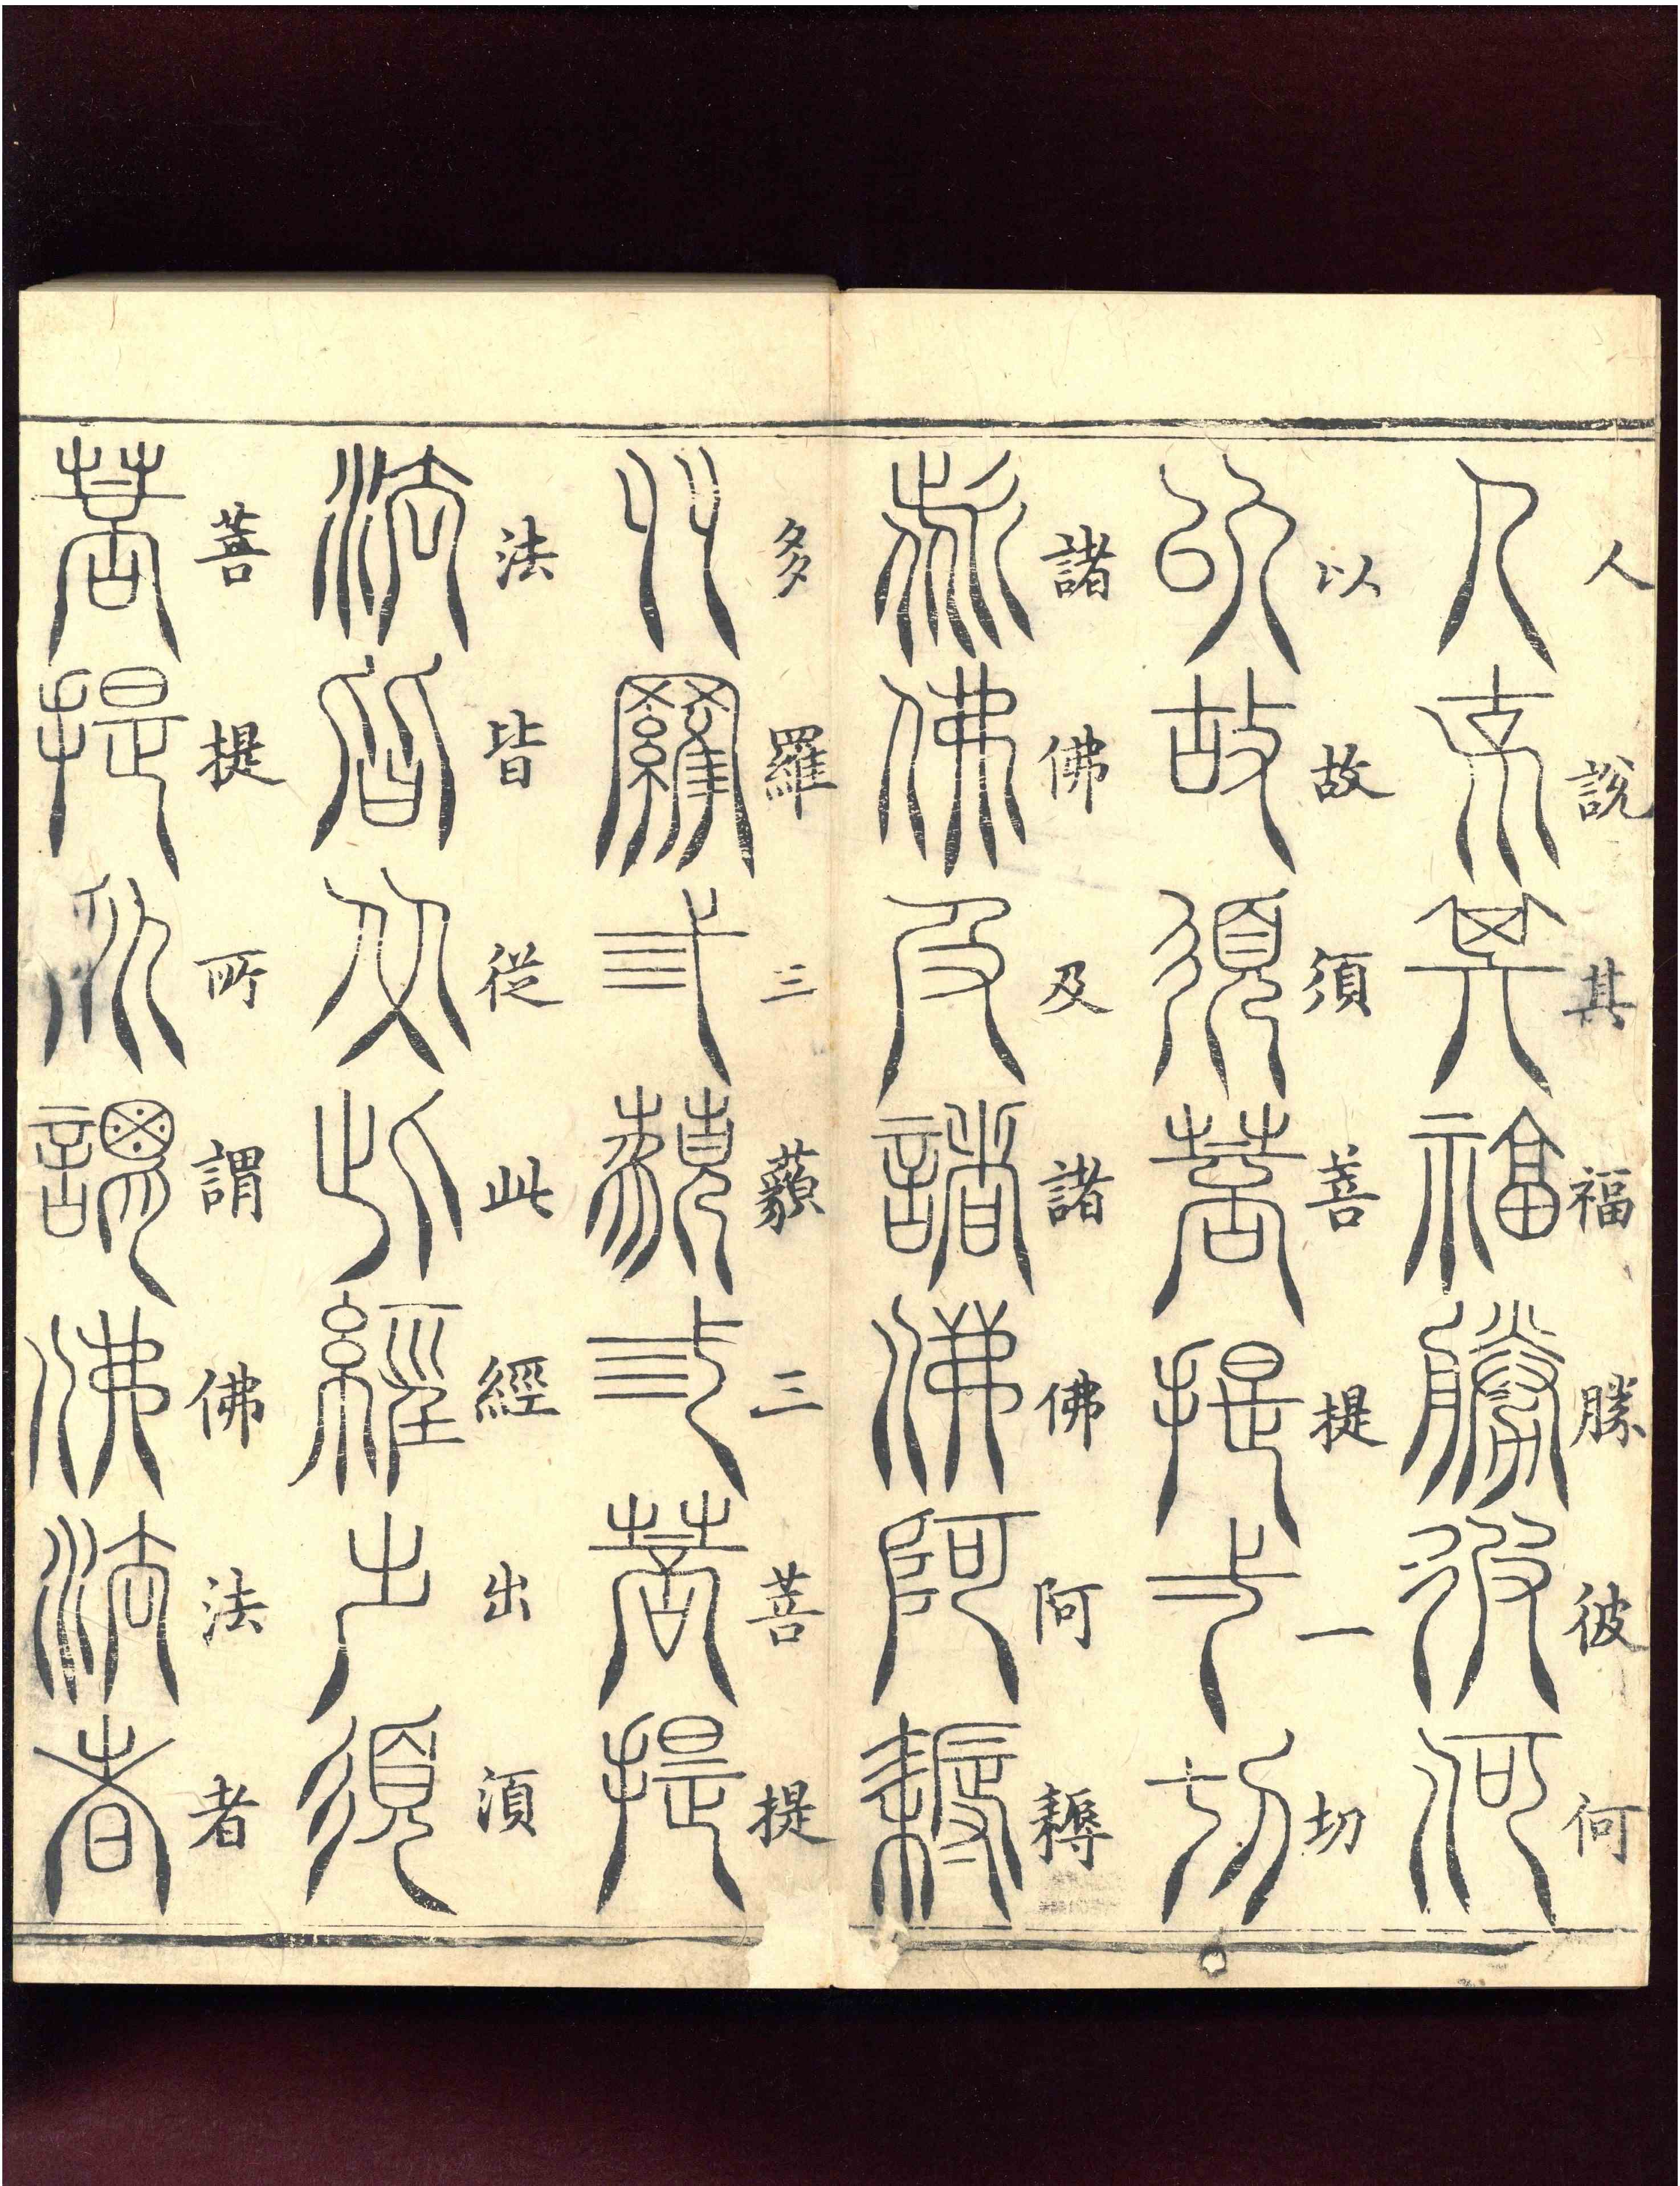 人說其福勝彼何
以故須菩提一切
諸佛及諸佛阿耨
多羅三藐三菩提
法皆從此經出須
菩提所謂佛法者